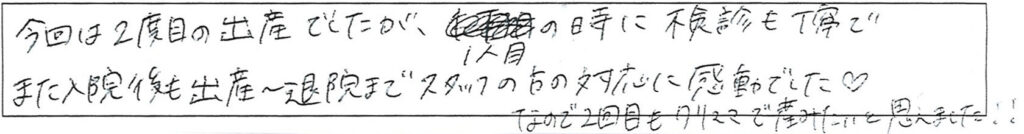 今回は2度目の出産でしたが、1人目の時に検診も丁寧で
また入院後も出産～退院までスタッフの方の対応に感動でした♡
なので2回目もで産みたいと思えました!!